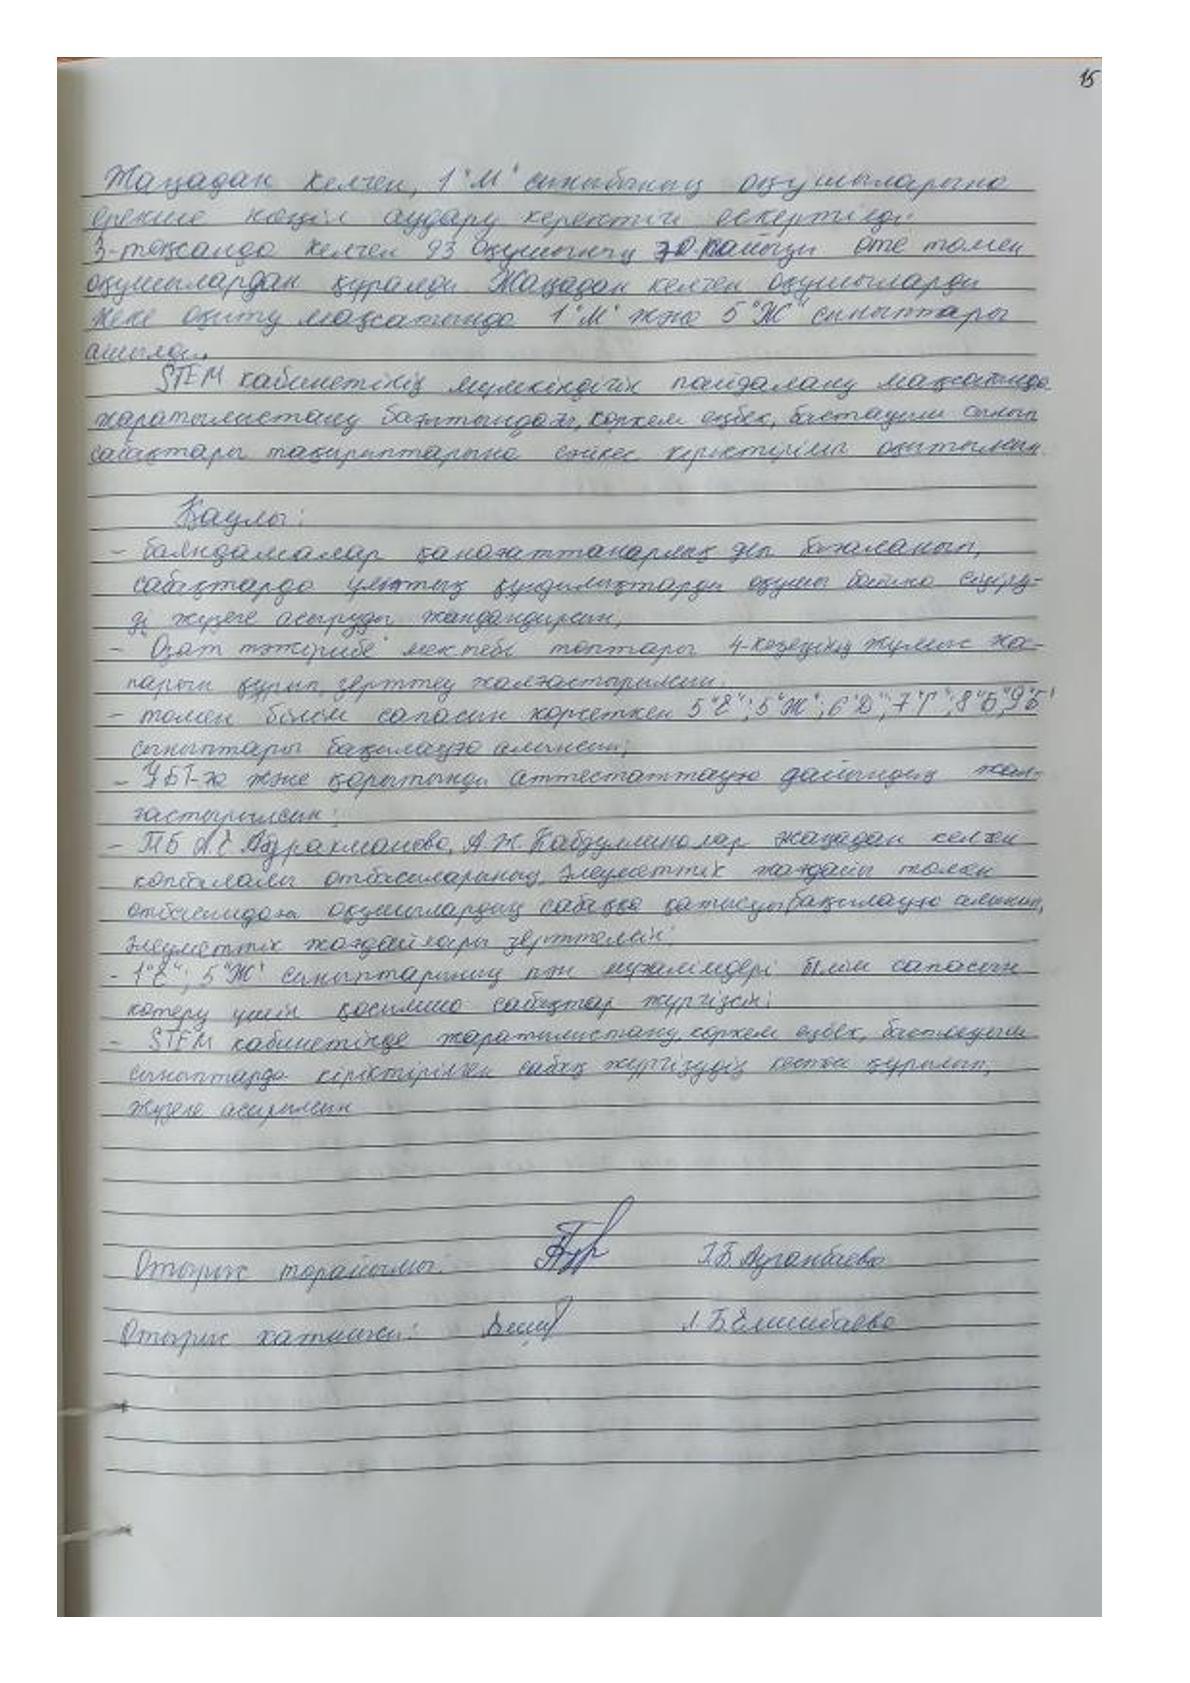 15
Жаңадан келген, 1"М" сыныбының оқушыларына
ерекше көңіл аудару керектігі ескертілді.
3-тоқсанда келген 93 оқушының 70 пайызы өте төмен
оқушылардан құралды. Жаңадан келген оқушыларды
жеке оқыту мақсатында 1"М" және 5"Ж" сыныптары
ашылды.
STEM кабинетінің мүмкіндігін пайдалану мақсатында
жаратылыстану бағытындағы, көркем еңбек, бастауыш сынып
сабақтары тақырыптарына сәйкес кіріктірілі оқытылсын.
Қаулы:
- баяндамалар қанағаттанарлық деп бағаланып,
сабақтарда ұлттық құндылықтарды оқушы бойына сіңіру-
ді жүзеге асыруды жандандырсын;
- Озат тәжірибе мектебі топтары 4-кезеңнің жұмыс жос-
парын құрып, зерттеу жалғастырылсын.
- төмен білім сапасын көрсеткен 5"Е"; 5"Ж"; 6"D"; 7"Г"; 8"Б", 9"Б"
сыныптары бақылауға алынсын;
- ҰБТ-ға және қорытынды аттестаттауға дайындық жал-
ғастырылсын;
- ТБ А.Е Абдрахманова, А.Ж. Кабдуллиналар жаңадан келген
көпбалалы отбасыларының, әлеуметтік жағдайы төмен
отбасындағы оқушылардың сабаққа қатысуы бақылауға алынып,
әлеуметтік жағдайлары зерттелсін;
- 1"Е"; 5"Ж" сыныптарының пән мұғалімдері білім сапасын
көтеру үшін қосымша сабақтар жүргізсін;
- STEM кабинетінде жаратылыстану, көркем еңбек, бастауыш
сыныптарда кіріктірілген сабақ жүргізудің кестесі құрылып,
жүзеге асырылсын
Отырыс төрайымы: Г.Б. Ауганбаева
Отырыс хатшысы: Л.Б Елшибаева